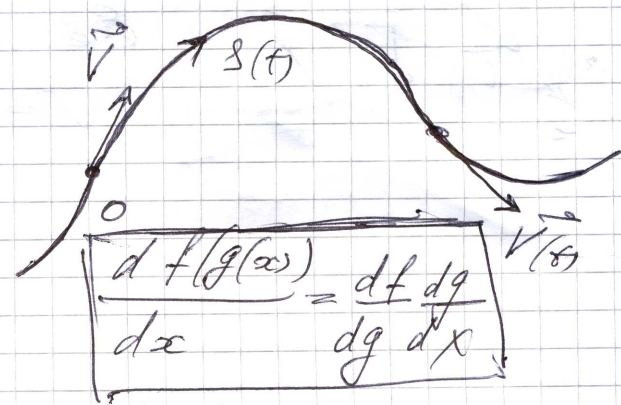 V
S(t)
O
V(t)
d f(g(x)) / dx = df/dg dg/dx